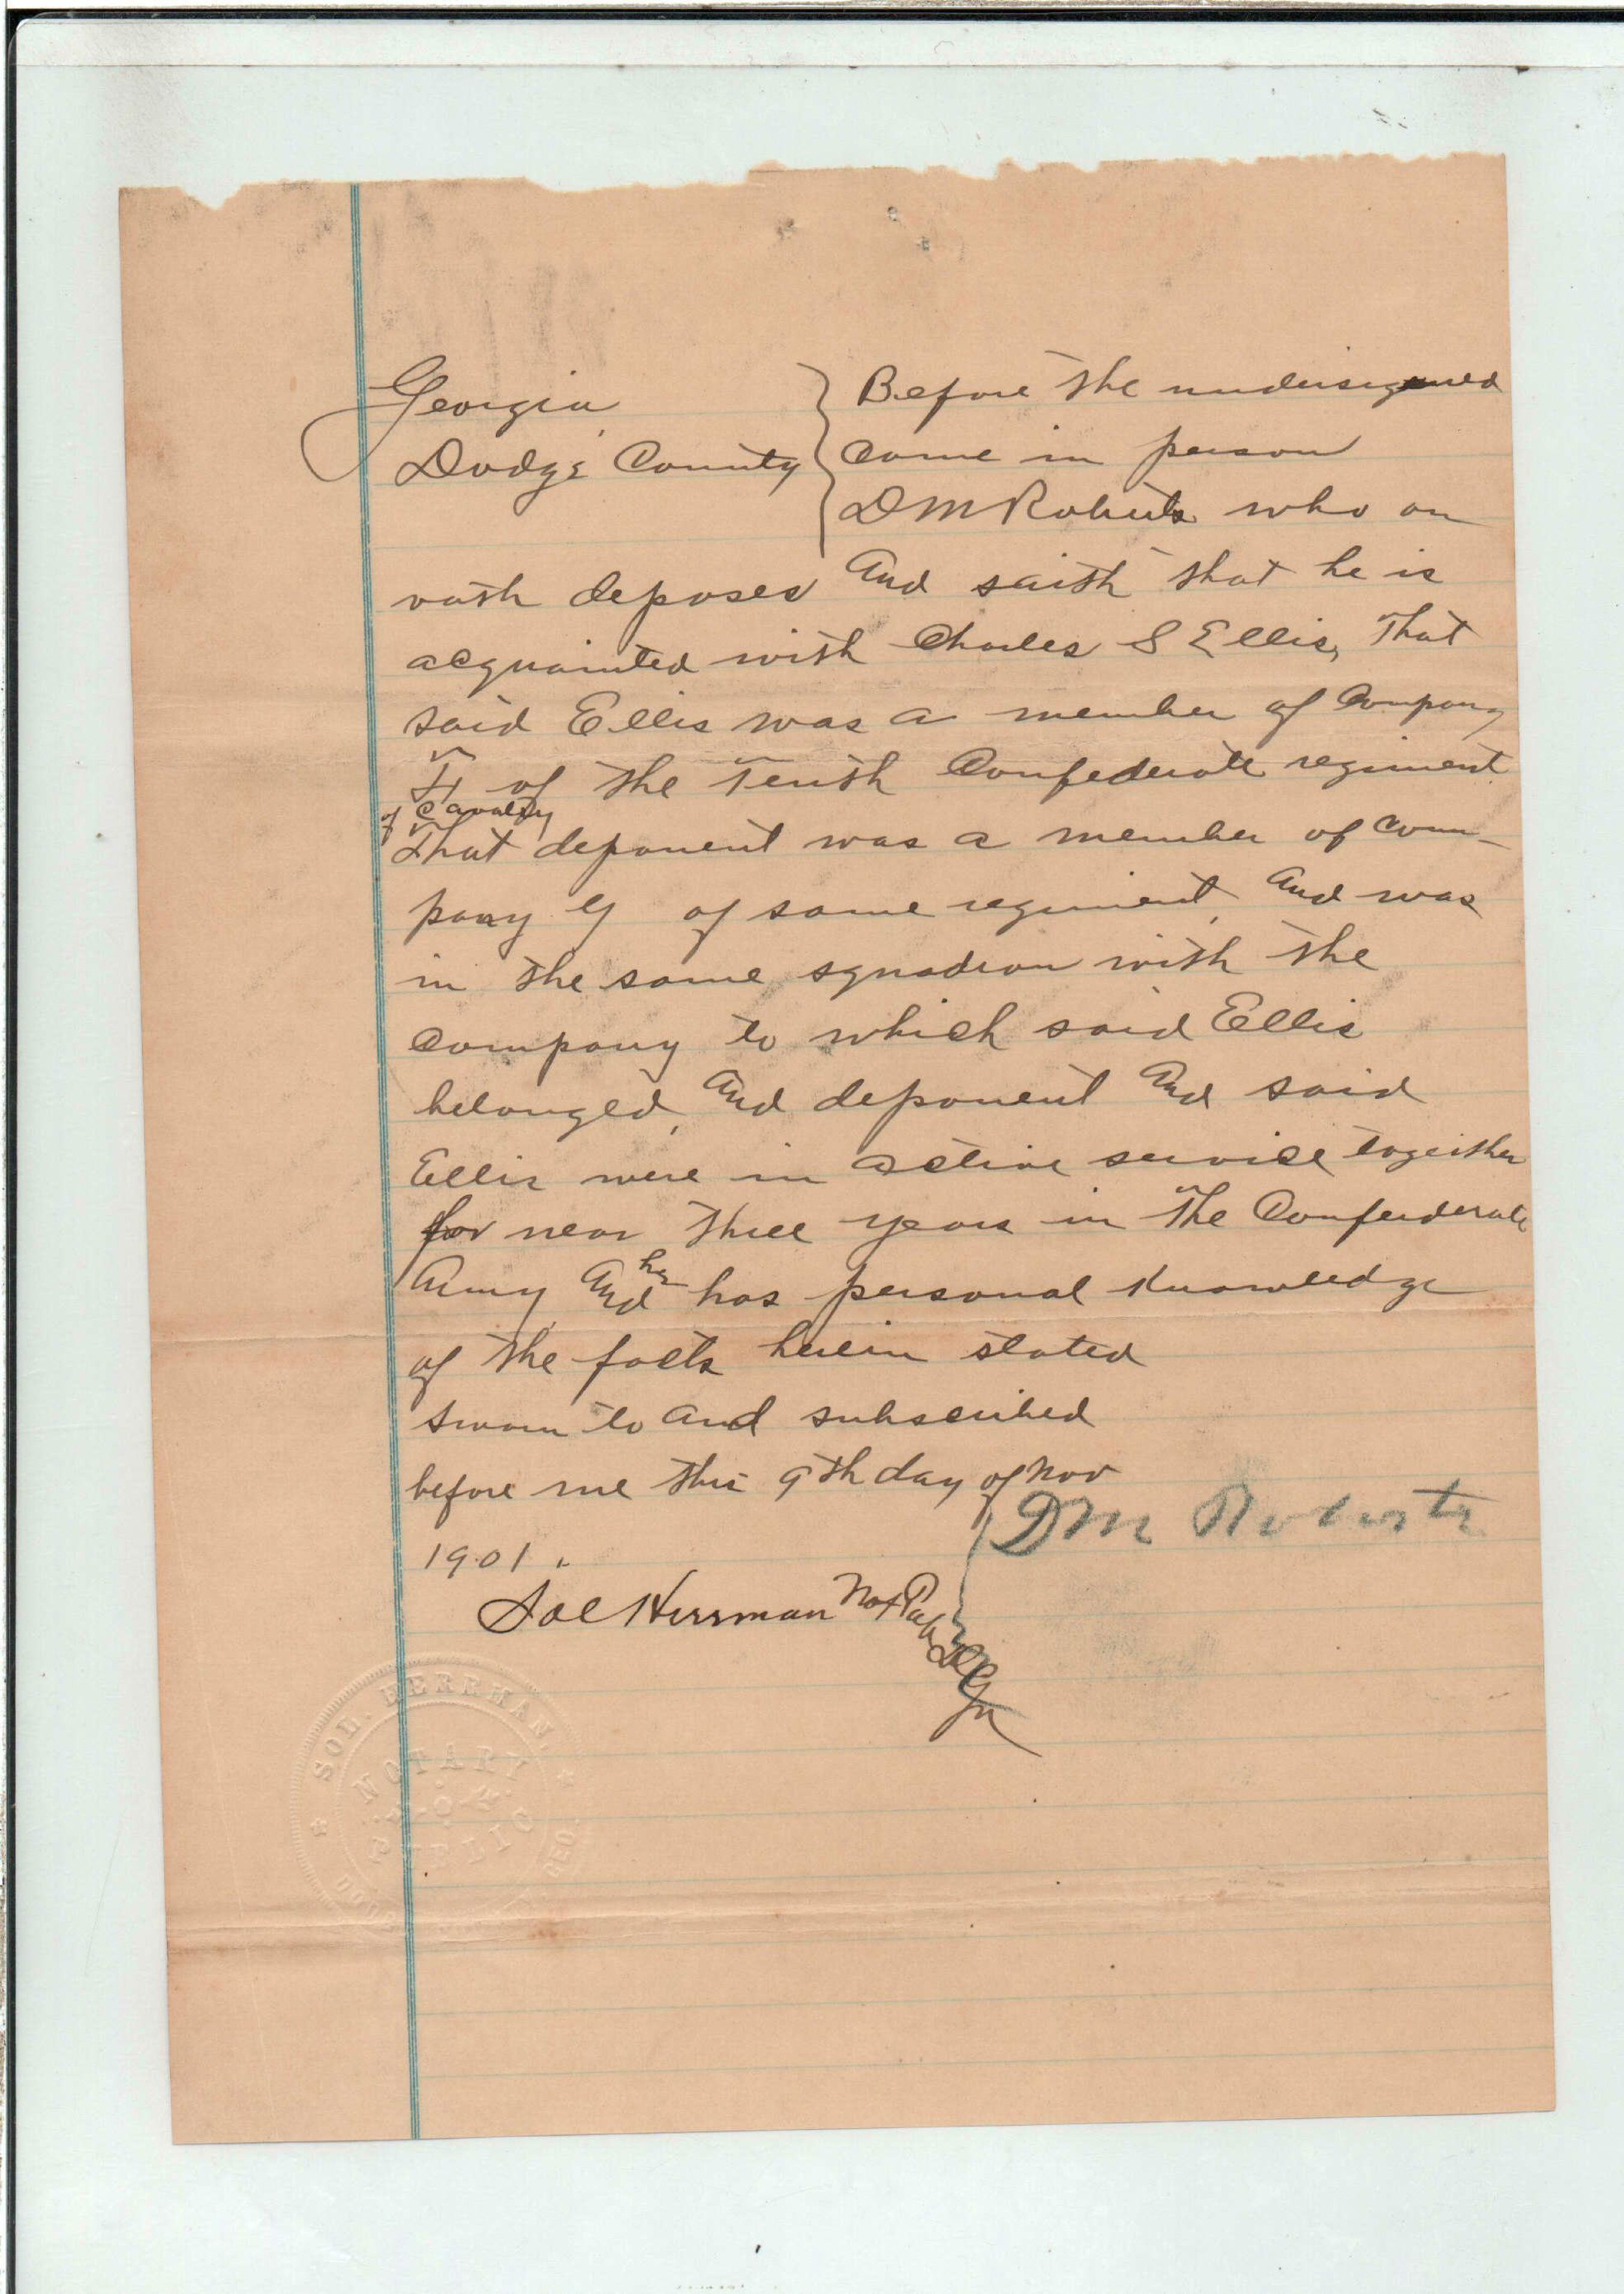 Georgia,
Dodge County
Before the undersigned
come in person
D M Roberts who on
oath deposes and saith that he is
acquainted with Charles S Ellis, That
said Ellis was a member of Company
of the Tenth Confederate regiment
of Cavalry
That deponent was a member of com-
pany G of same regiment, and was
in the same squadron with the
company to which said Ellis
belonged, and deponent and said
Ellis were in active service together
for near three years in the Confederate
Army, and he has personal knowledge
of the facts herein stated
sworn to and subscribed
before me this 9th day of Nov
1901.
D M Roberts
Sol Herrman Not Pub D C Ga
SOL. HERRMAN,
NOTARY
PUBLIC
GEO.